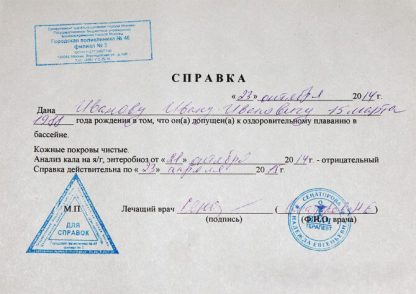 Городская поликлиника № 46
филиал № 3
СПРАВКА
« 23 » октября 2014 г.
Дана Иванову Ивану Ивановичу 15 марта
года рождения в том, что он(а) допущен(а) к оздоровительному плаванию в
бассейне.
Кожные покровы чистые.
Анализ кала на я/г, энтеробиоз от « » октября 2014 г. - отрицательный
Справка действительна по « 23 » апреля 20 г.
М.П.
ДЛЯ
СПРАВОК
Лечащий врач ( )
(подпись) (Ф.И.О. врача)
СЕНАТОРОВА
ВРАЧ
ТЕРАПЕВТ
НАДЕЖДА ЕВГЕНЬЕВНА